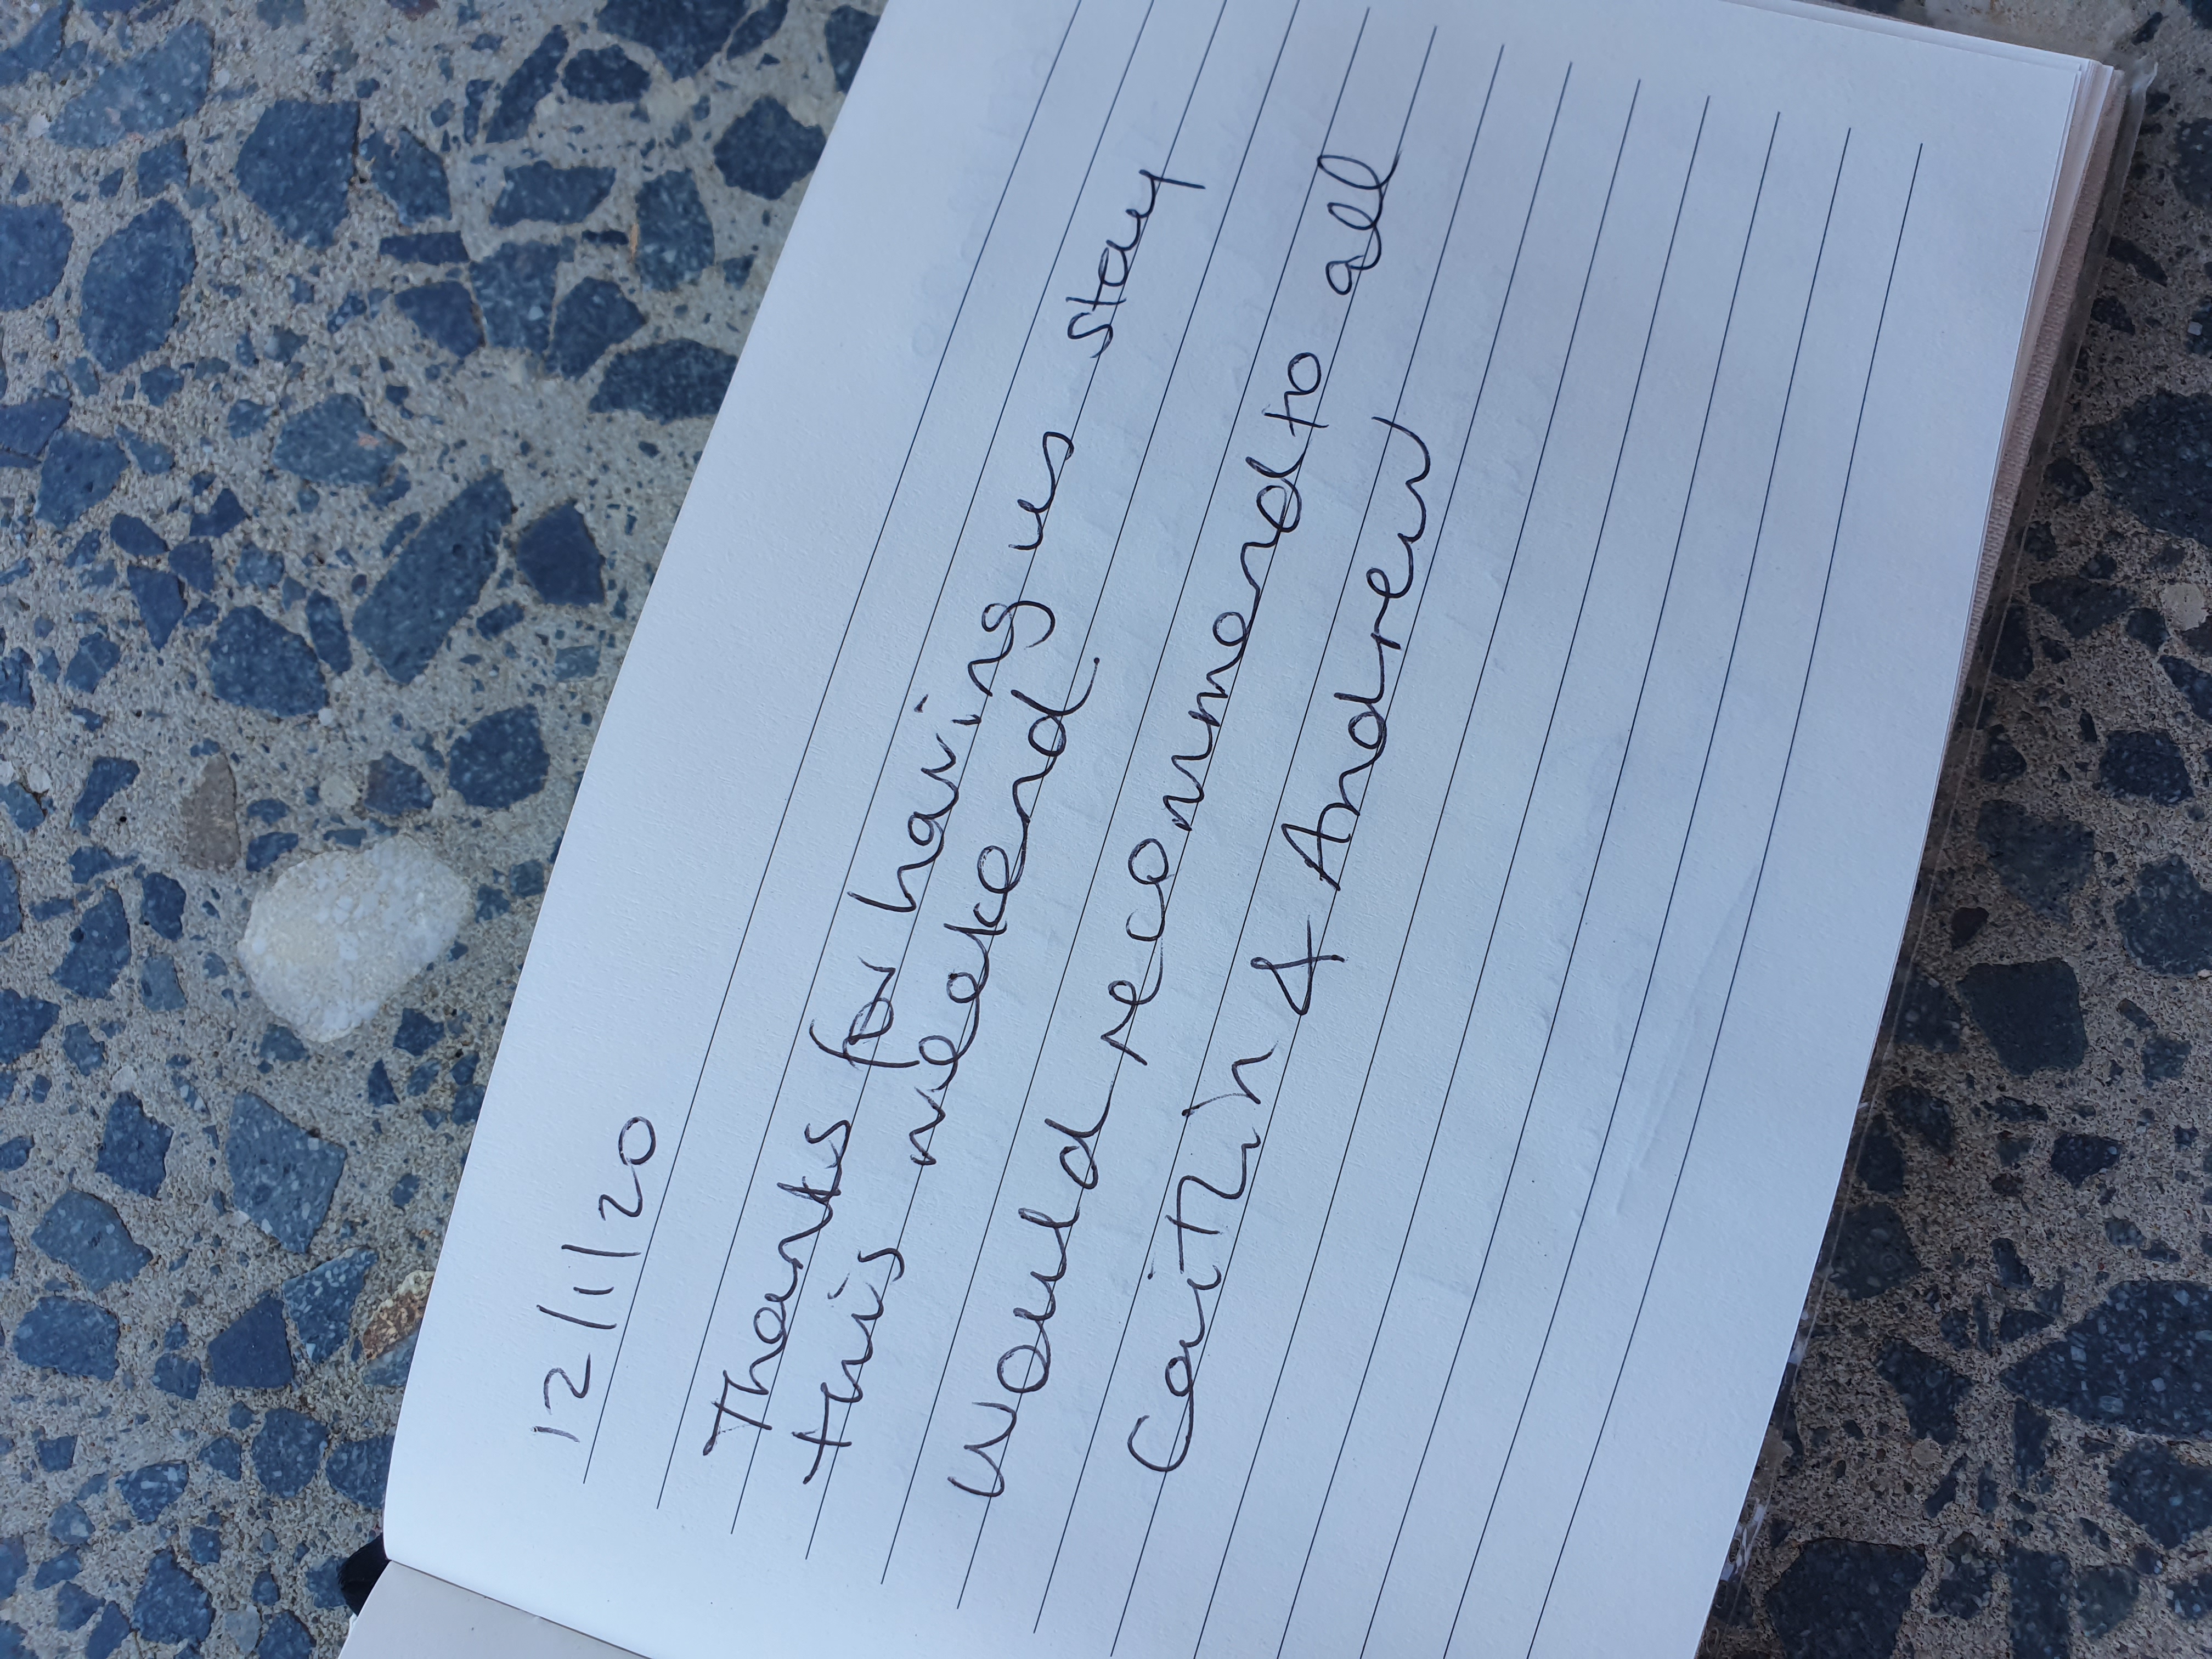 12/1/20
Thanks for having us stay
this weekend.
Would recommend to all
Caitlin & Andrew